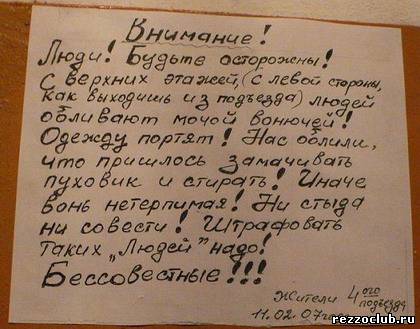 Внимание!
Люди! Будьте осторожны!
С верхних этажей, (с левой стороны,
как выходишь из подъезда) людей
обливают мочой вонючей!
Одежду портят! Нас облили,
что пришлось замачивать
пуховик и стирать! Иначе
вонь нетерпимая! Ни стыда
ни совести! Штрафовать
таких „Людей" надо!
Бессовестные!!!
Жители 4ого
подъезда
11.02.07г
rezzoclub.ru